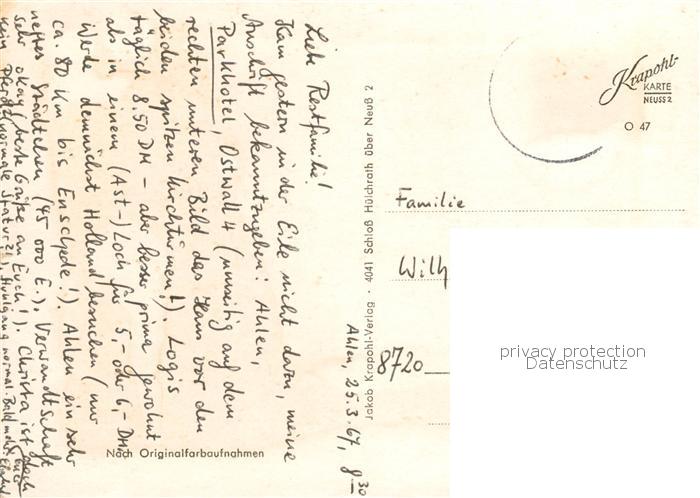 Ahlen, 25.3.67, 8 30
Liebe Restfamilie!
Kam gestern in der Eile nicht dazu, meine
Anschrift bekanntzugeben: Ahlen,
Parkhotel, Ostwall 4 (umseitig auf dem
rechten unteren Bild das Haus vor den
beiden spitzen Kirchtürmen!). Logis
täglich 8.50 DM – aber besser prima gewohnt
als in einem (Ast-)Loch für 5,- oder 6,- DM.
Werde demnächst Holland besuchen (nur
ca. 80 Km bis Enschede!). Ahlen ein sehr
nettes Städtchen (45 000 E.), Verwandtschaft
sehr okay (beste Grüße an Euch!). Christa ist doch
kein Pferd (normale Statur!), Stuhlgang normal. Bald mehr.
Nach Originalfarbaufnahmen
Jakob Krapohl-Verlag · 4041 Schloß Hülchrath über Neuß 2
Krapohl-
KARTE
NEUSS 2
O 47
Familie
Wilh
8720
privacy protection
Datenschutz